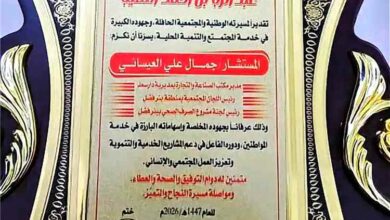 تقديراً لمسيرته الوطنية والمجتمعية الحافلة، وجهوده الكبيرة
في خدمة المجتمع والتنمية المحلية، يسرنا أن نكرم:
المستشار جمال علي العيساني
مدير مكتب الصناعة والتجارة بمديرية دار سعد
رئيس اللجان المجتمعية بمنطقة بئر فضل
رئيس لجنة مشروع الصرف الصحي ببئر فضل
وذلك عرفاناً بجهوده المخلصة وإسهاماته البارزة في خدمة
المواطنين، ودوره الفاعل في دعم المشاريع الخدمية والتنموية
وتعزيز العمل المجتمعي والإنساني.
متمنين له دوام التوفيق والصحة والعطاء،
ومواصلة مسيرة النجاح والتميز.
للعام 1447هـ/2026م
ختم